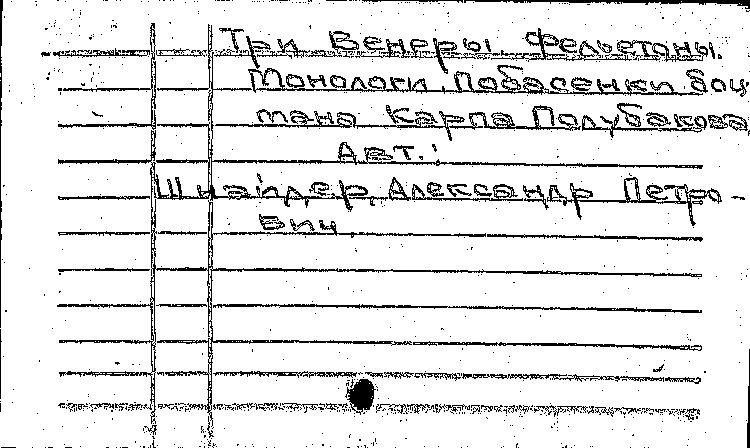 Три Венеры. Фельетоны.
Монологи. Побасенки боц
мана Карпа Полубакова
Авт.:
Шнайдер, Александр Петро-
вич.